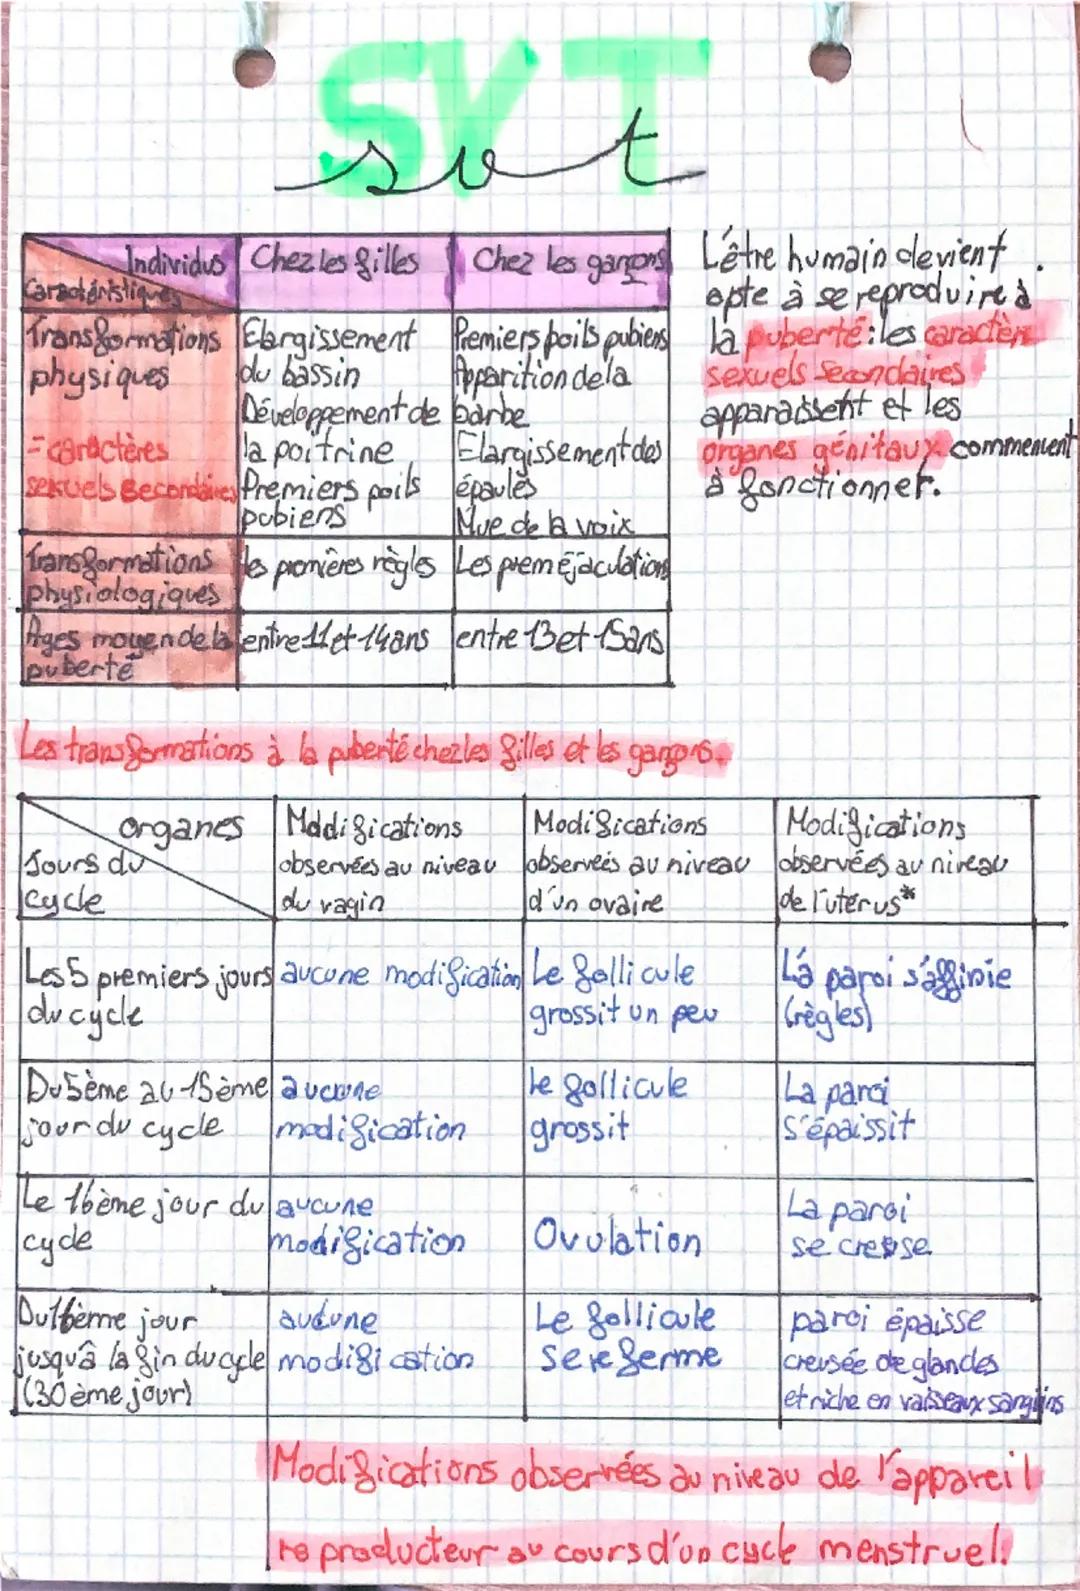 SVT
svt
Individus
Caractéristiques
Chez les filles
Chez les garçons
Transformations
physiques
= caractères
sexuels secondaires
Elargissement
du bassin
Développement de
la poitrine
Premiers poils
pubiens
Premiers poils pubiens
Apparition de la
barbe
Elargissement des
épaules
Mue de la voix
Transformations
physiologiques
les premières règles
Les prem éjaculations
Ages moyen de la
puberté
entre 11 et 14 ans
entre 13 et 15 ans
L'être humain devient
apte à se reproduire à
la puberté : les caractères
sexuels secondaires
apparaissent et les
organes génitaux commencent
à fonctionner.
Les transformations à la puberté chez les filles et les garçons.
organes
Jours du
cycle
Modifications
observées au niveau
du vagin
Modifications
observées au niveau
d'un ovaire
Modifications
observées au niveau
de l'utérus*
Les 5 premiers jours
du cycle
aucune modification
Le follicule
grossit un peu
La paroi s'affinie
(règles)
Du 5ème au 15ème
jour du cycle
aucune
modification
le follicule
grossit
La paroi
s'épaissit
Le 16ème jour du
cycle
aucune
modification
Ovulation
La paroi
se creuse
Du 16ème jour
jusqu'à la fin du cycle
(30ème jour)
aucune
modification
Le follicule
se referme
paroi épaisse
creusée de glandes
et riche en vaisseaux sanguins
Modifications observées au niveau de l'appareil
reproducteur au cours d'un cycle menstruel.